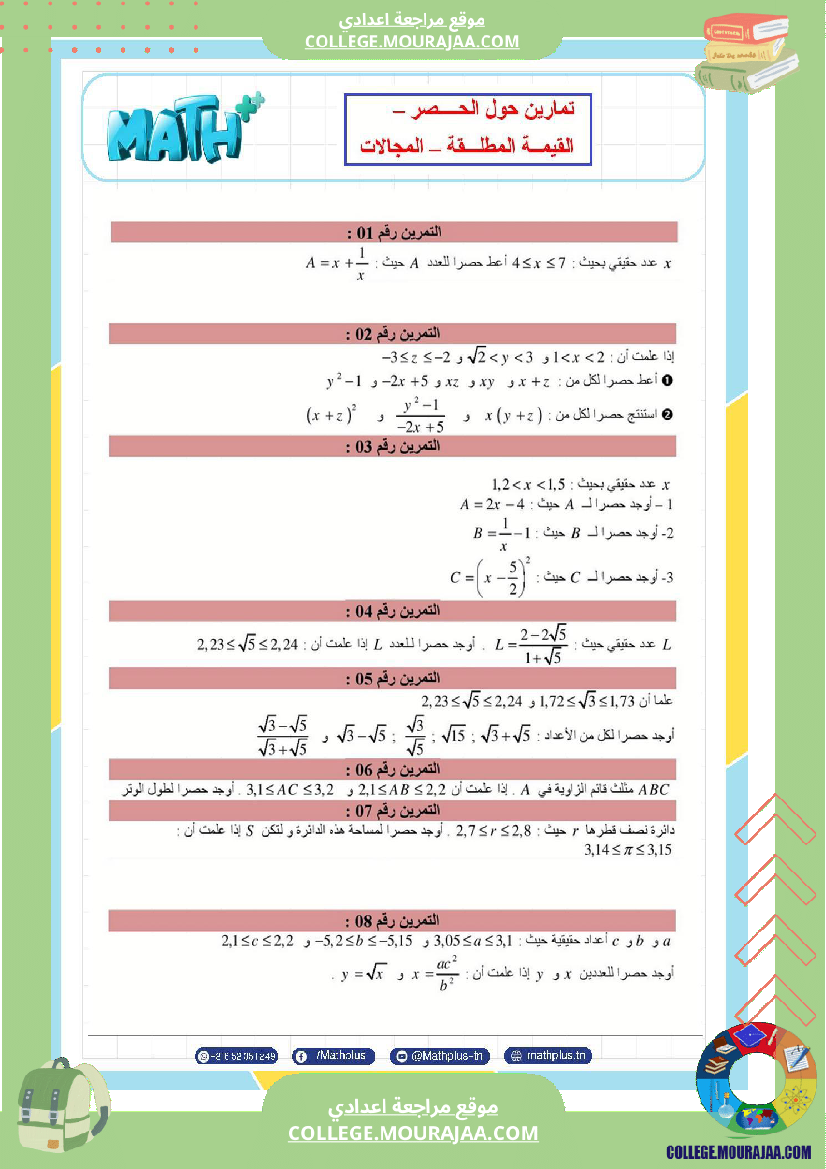 موقع مراجعة اعدادي
COLLEGE.MOURAJAA.COM
MATH++
تمارين حول الحـــصر –
القيمـة المطلـــقة – المجالات
التمرين رقم 01 :
x عدد حقيقي بحيث : 4 ≤ x ≤ 7 أعط حصرا للعدد A حيث : A = x + 1/x
التمرين رقم 02 :
إذا علمت أن : 1 < x < 2 و √2 < y < 3 و −3 ≤ z ≤ −2
❶ أعط حصرا لكل من : x + z و xy و xz و −2x + 5 و y² − 1
❷ استنتج حصرا لكل من : x(y + z) و (y² − 1)/(−2x + 5) و (x + z)²
التمرين رقم 03 :
x عدد حقيقي بحيث : 1,2 < x < 1,5
1 – أوجد حصرا لـ A حيث : A = 2x − 4
2- أوجد حصرا لـ B حيث : B = 1/x − 1
3- أوجد حصرا لـ C حيث : C = (x − 5/2)²
التمرين رقم 04 :
L عدد حقيقي حيث : L = (2 − 2√5)/(1 + √5) . أوجد حصرا للعدد L إذا علمت أن : 2,23 ≤ √5 ≤ 2,24
التمرين رقم 05 :
علما أن 1,72 ≤ √3 ≤ 1,73 و 2,23 ≤ √5 ≤ 2,24
أوجد حصرا لكل من الأعداد : √3 + √5 ; √15 ; √3/√5 ; √3 − √5 و (√3 − √5)/(√3 + √5)
التمرين رقم 06 :
ABC مثلث قائم الزاوية في A . إذا علمت أن 2,1 ≤ AB ≤ 2,2 و 3,1 ≤ AC ≤ 3,2 . أوجد حصرا لطول الوتر
التمرين رقم 07 :
دائرة نصف قطرها r حيث : 2,7 ≤ r ≤ 2,8 . أوجد حصرا لمساحة هذه الدائرة و لتكن S إذا علمت أن :
3,14 ≤ π ≤ 3,15
التمرين رقم 08 :
a و b و c أعداد حقيقية حيث : 3,05 ≤ a ≤ 3,1 و −5,2 ≤ b ≤ −5,15 و 2,1 ≤ c ≤ 2,2
أوجد حصرا للعددين x و y إذا علمت أن : x = ac²/b² و y = √x .
/Mathplus
@Mathplus-tn
mathplus.tn
موقع مراجعة اعدادي
COLLEGE.MOURAJAA.COM
COLLEGE.MOURAJAA.COM